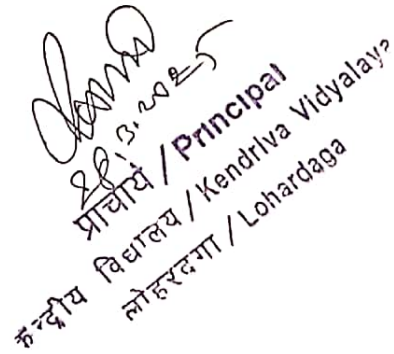 28.3.2025
प्राचार्य / Principal
केन्द्रीय विद्यालय / Kendriya Vidyalaya
लोहरदगा / Lohardaga